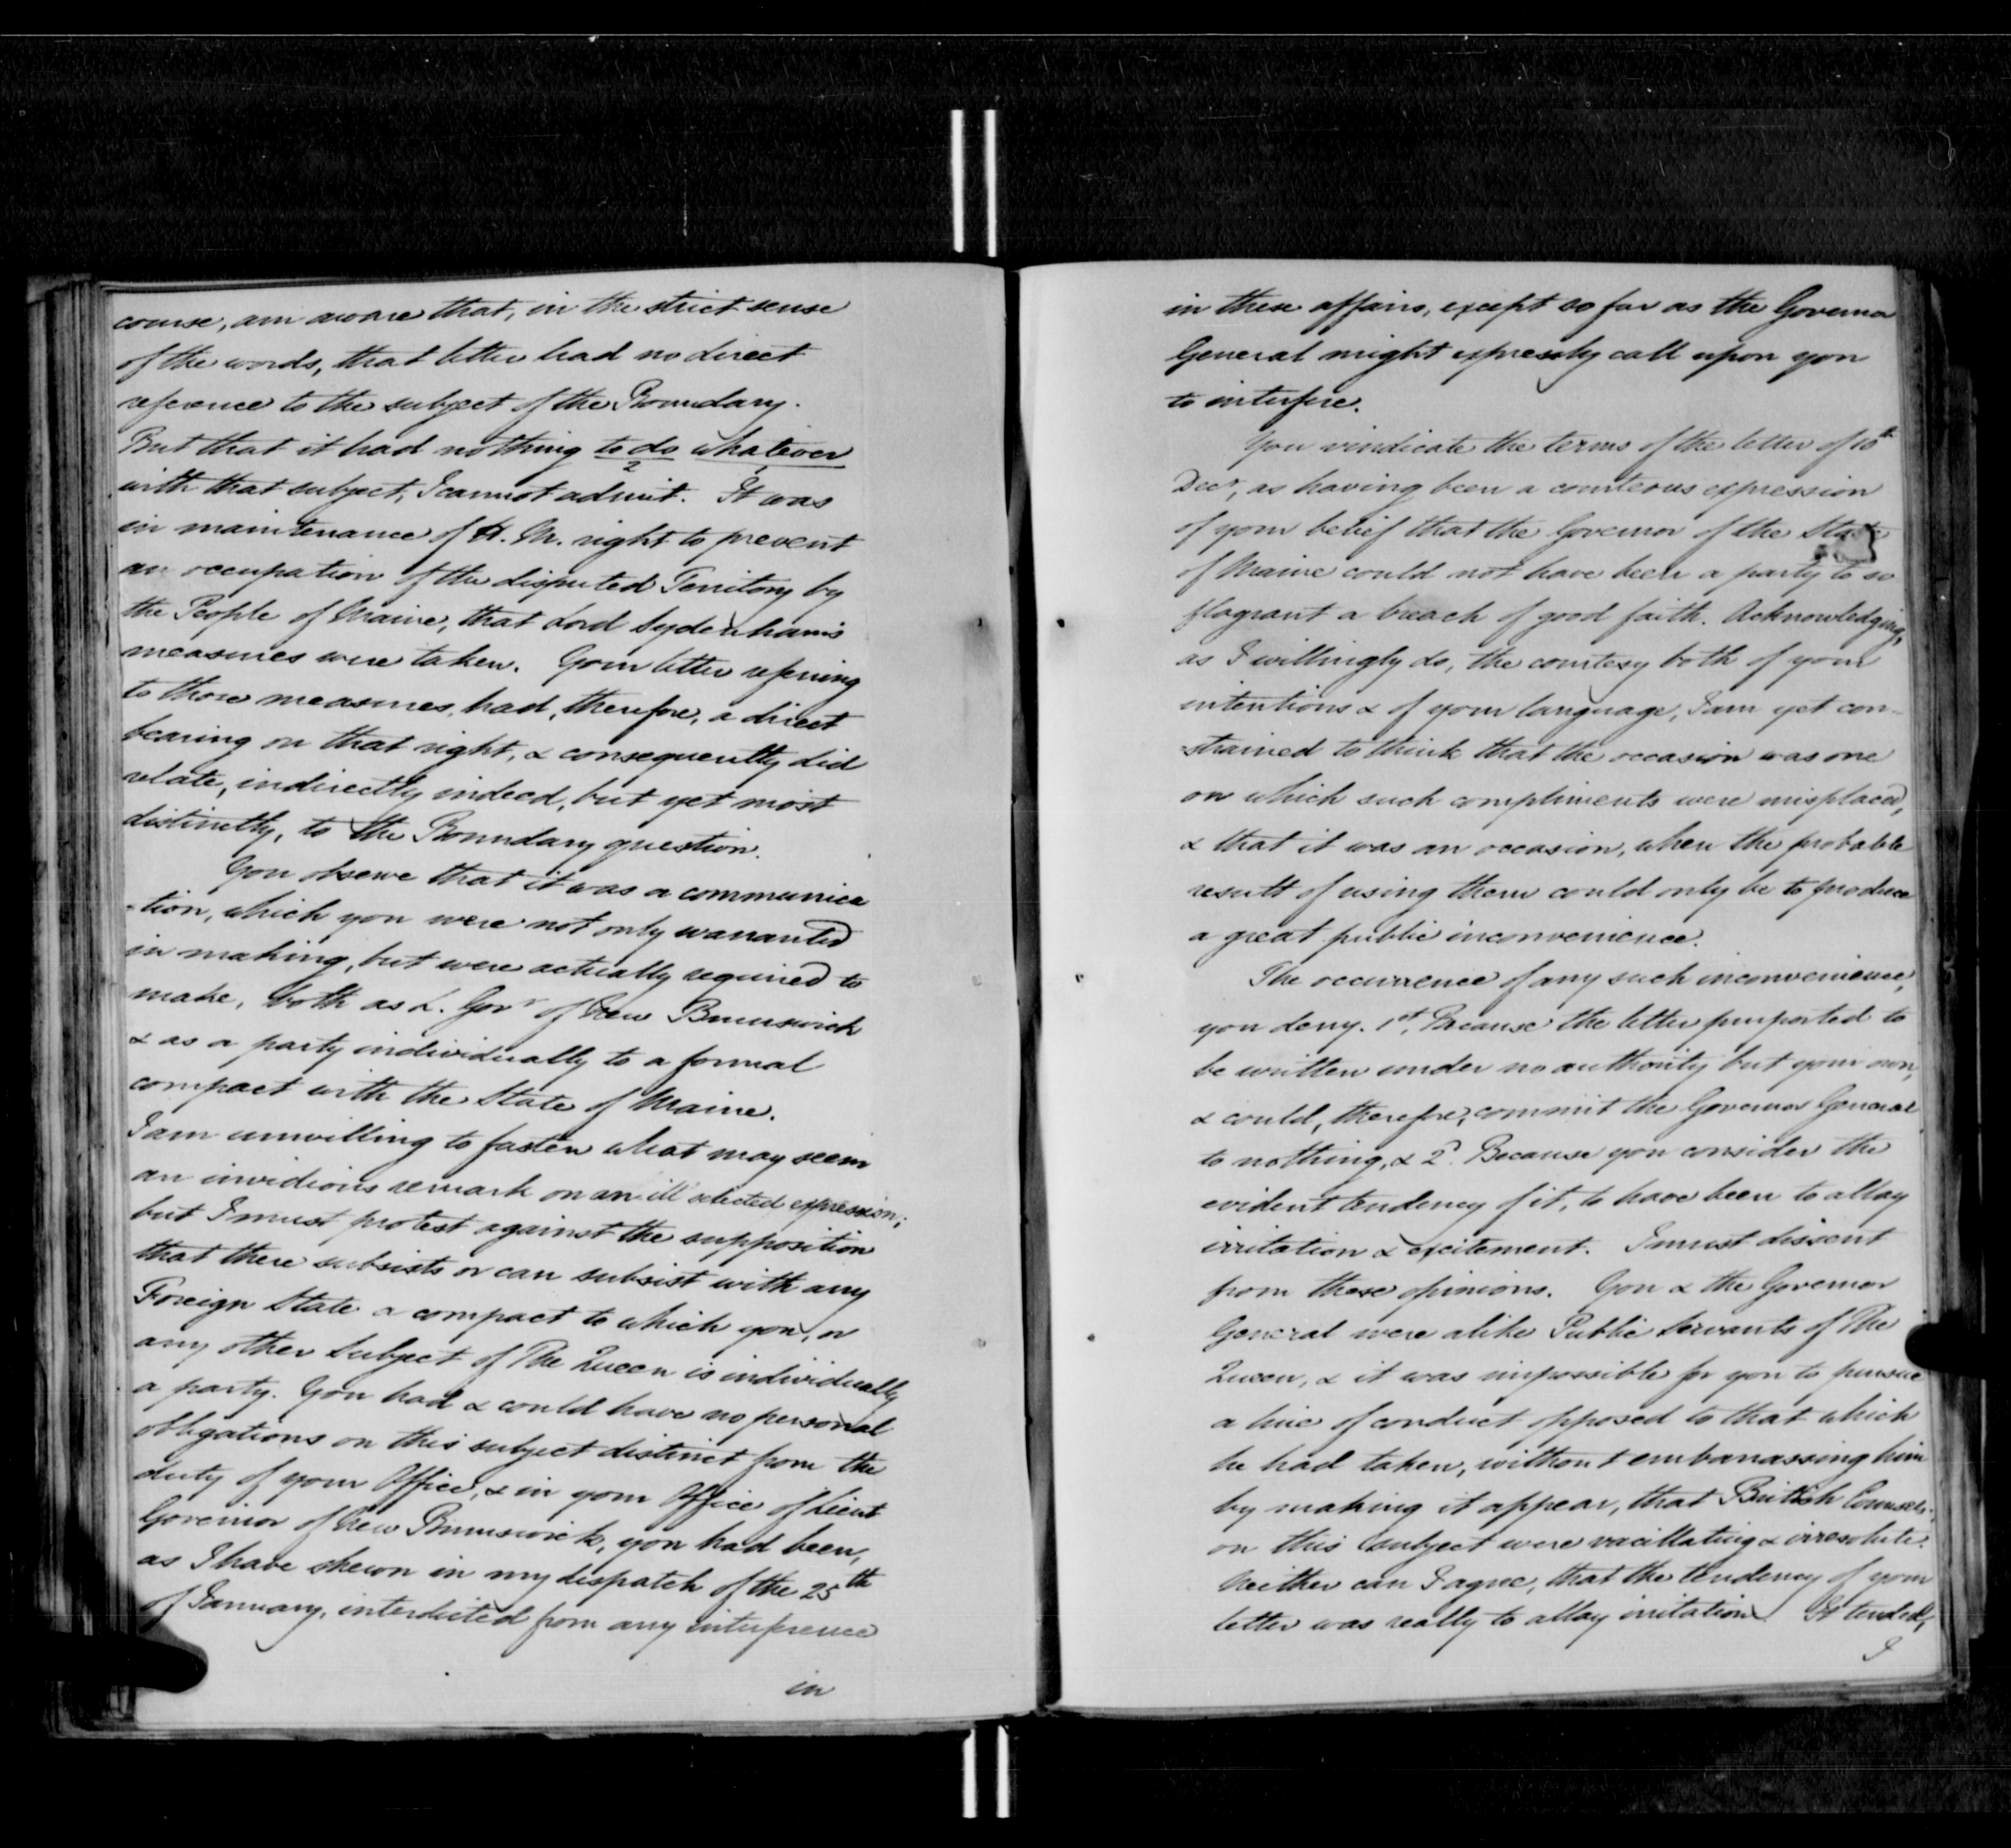 course, am aware that, in the strict sense
of the words, that letter had no direct
reference to the subject of the Boundary.
But that it had nothing to do whatever
2 1
with that subject, I cannot admit. It was
in maintenance of H. M. right to prevent
an occupation of the disputed Territory by
the People of Maine, that Lord Sydenham's
measures were taken. Your letter refering
to those measures, had, therefore, a direct
bearing on that right, & consequently did
relate, indirectly indeed, but yet most
distinctly, to the Boundary question.
You observe that it was a communica
-tion, which you were not only warranted
in making, but were actually required to
make, both as L. Govr of New Brunswick
& as a party individually to a formal
compact with the State of Maine.
I am unwilling to fasten what may seem
an invidious remark on an ill selected expression;
but I must protest against the supposition
that there subsists or can subsist with any
Foreign State a compact to which you, or
any other Subject of The Queen is individually
a party. You had & could have no personal
obligations on this subject distinct from the
duty of your Office, & in your Office of Lieut
Governor of New Brunswick, you had been,
as I have shewn in my dispatch of the 25th
of January, interdicted from any interference
in
in these affairs, except so far as the Governor
General might expressly call upon you
to interfere.
You vindicate the terms of the letter of 10th
Decr, as having been a courteous expression
of your belief that the Governor of the State
of Maine could not have been a party to so
flagrant a breach of good faith. Acknowledging,
as I willingly do, the courtesy both of your
intentions & of your language, I am yet con-
-strained to think that the occasion was one
on which such compliments were misplaced,
& that it was an occasion, when the probable
result of using them could only be to produce
a great public inconvenience.
The occurrence of any such inconvenience,
you deny. 1st, Because the letter purported to
be written under no authority but your own,
& could, therefore, commit the Governor General
to nothing, & 2d. Because you consider the
evident tendency of it, to have been to allay
irritation & excitement. I must dissent
from these opinions. You & the Governor
General were alike Public Servants of The
Queen, & it was impossible for you to pursue
a line of conduct opposed to that which
he had taken, without embarrassing him
by making it appear, that British Counsels
on this subject were vacillating & irresolute.
Neither can I agree, that the tendency of your
letter was really to allay irritation. It tended,
I